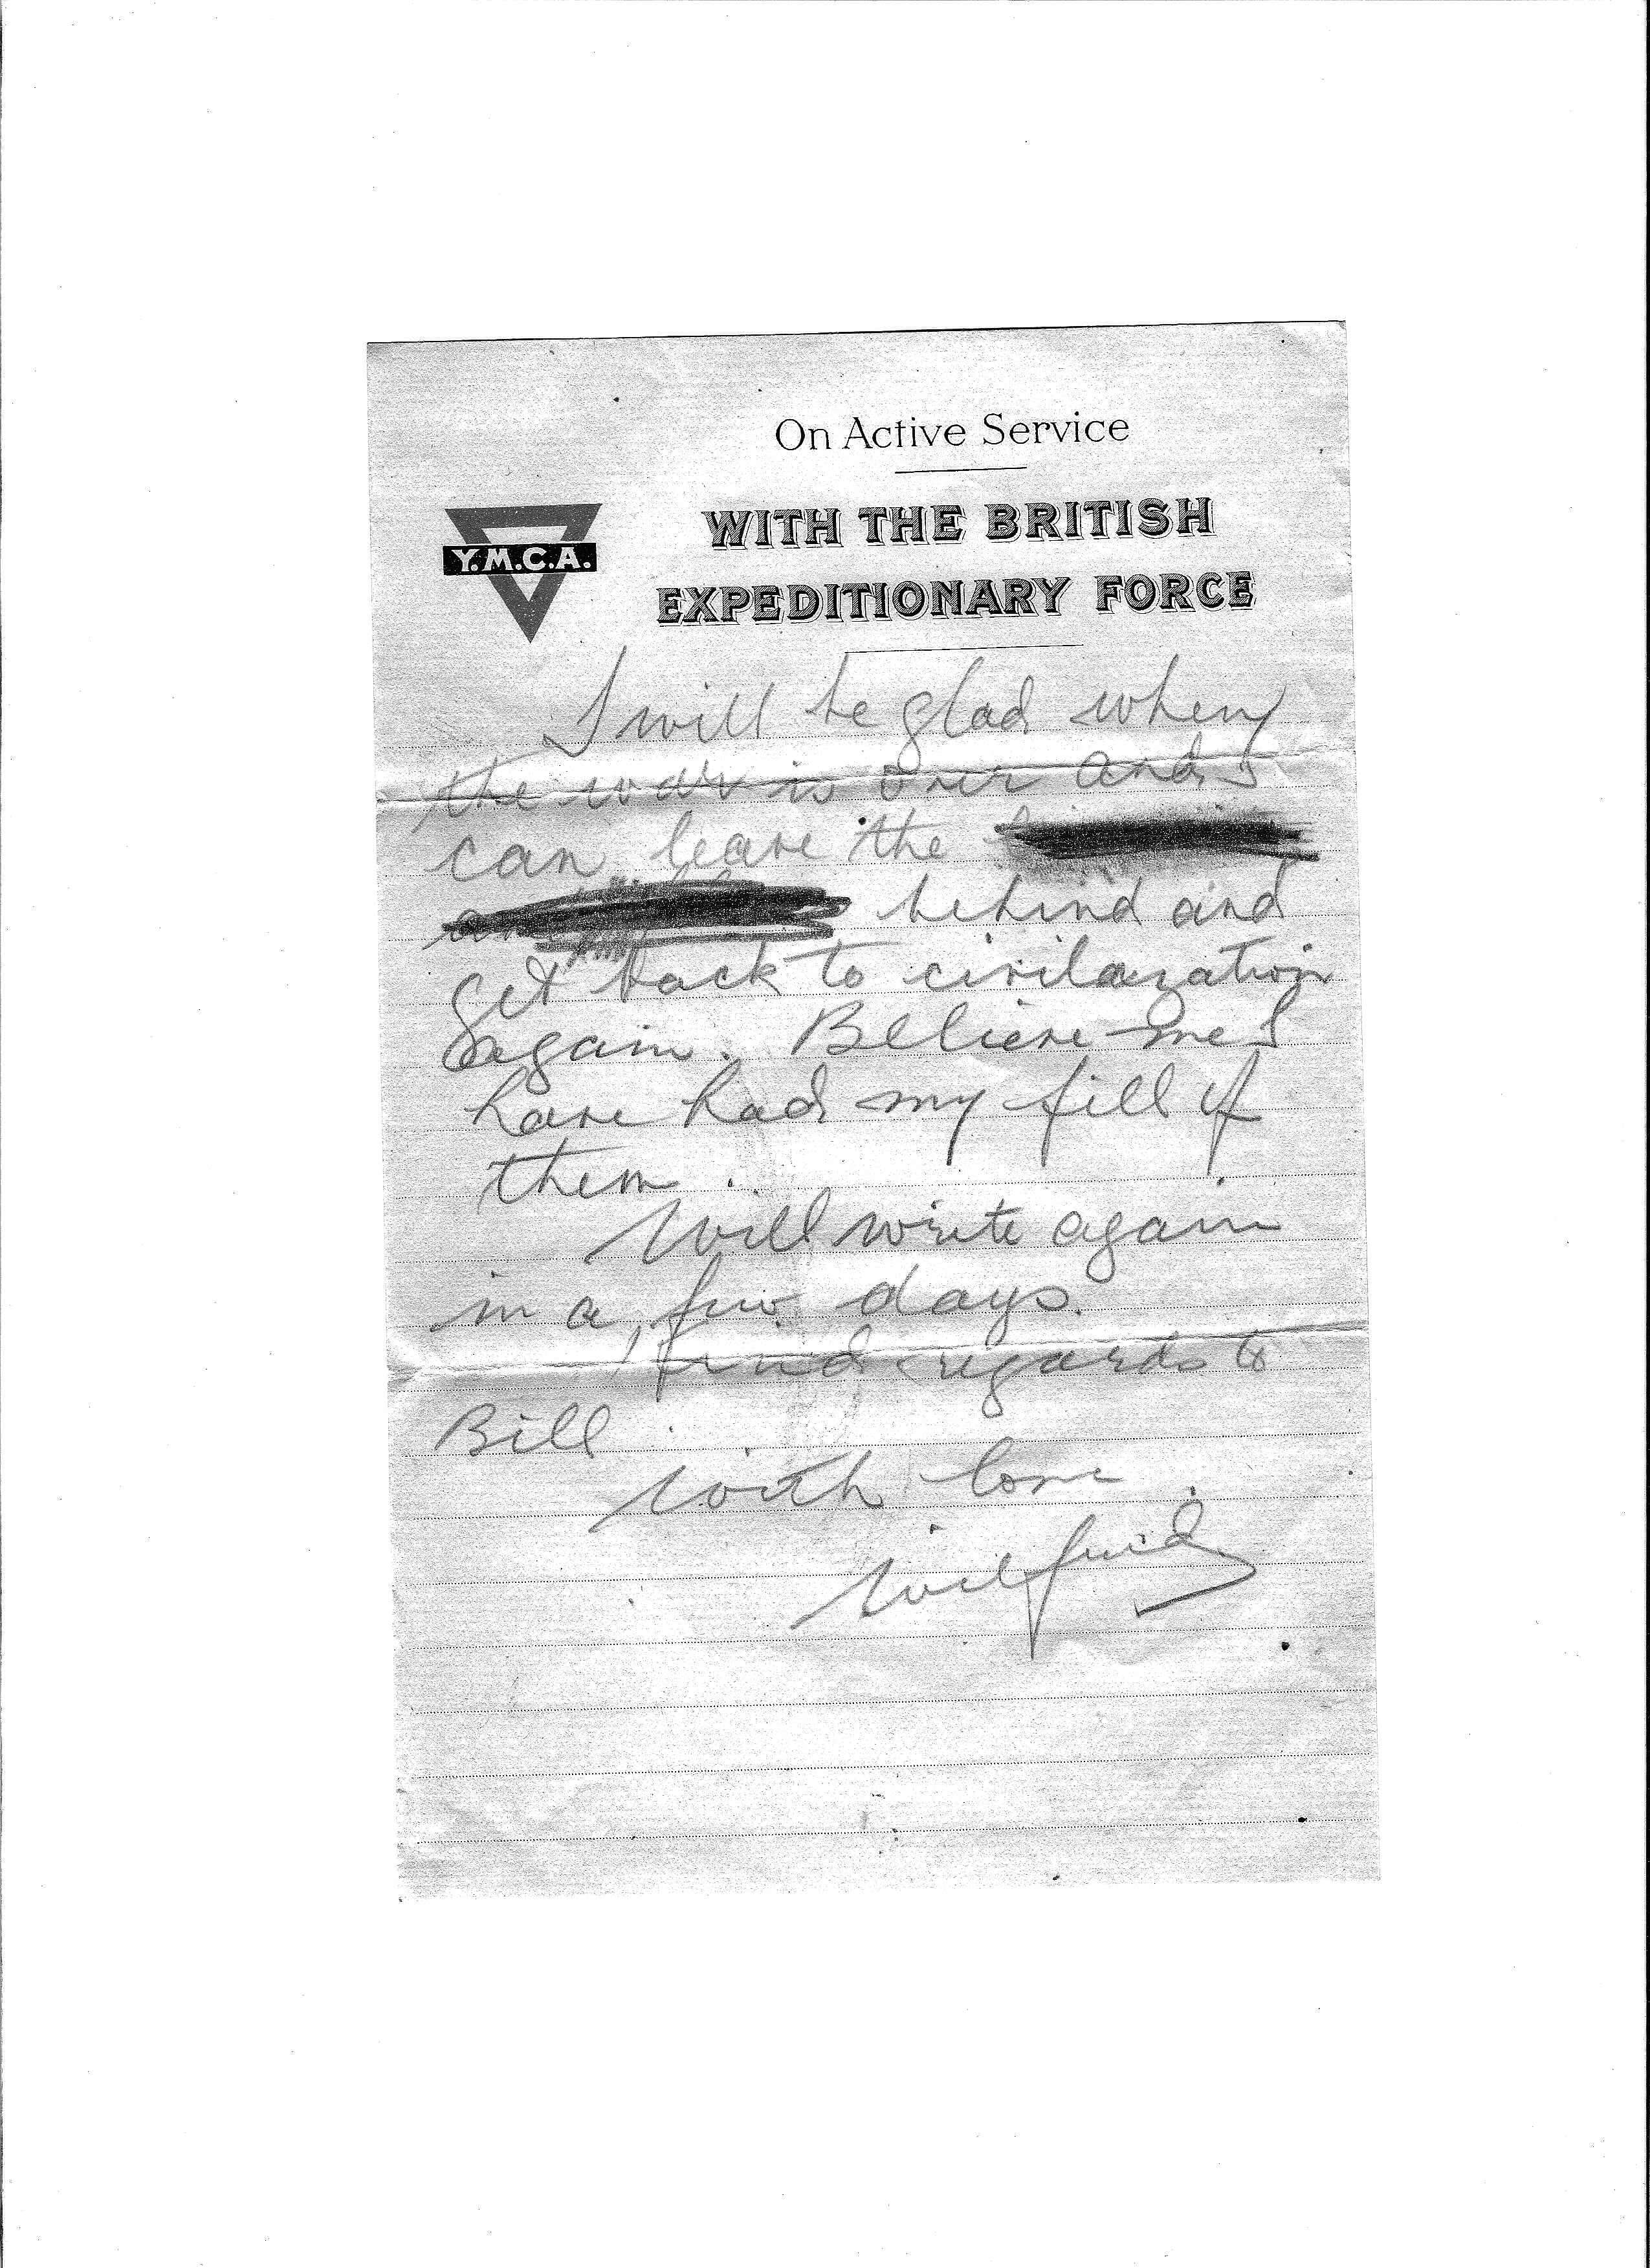 On Active Service
Y.M.C.A.
WITH THE BRITISH
EXPEDITIONARY FORCE
I will be glad when
the war is over and I
can leave the
behind and
get back to civilazation
again. Believe me I
have had my fill of
them.
Will write again
in a few days.
Kind regards to
Bill
With love
Wilfrid